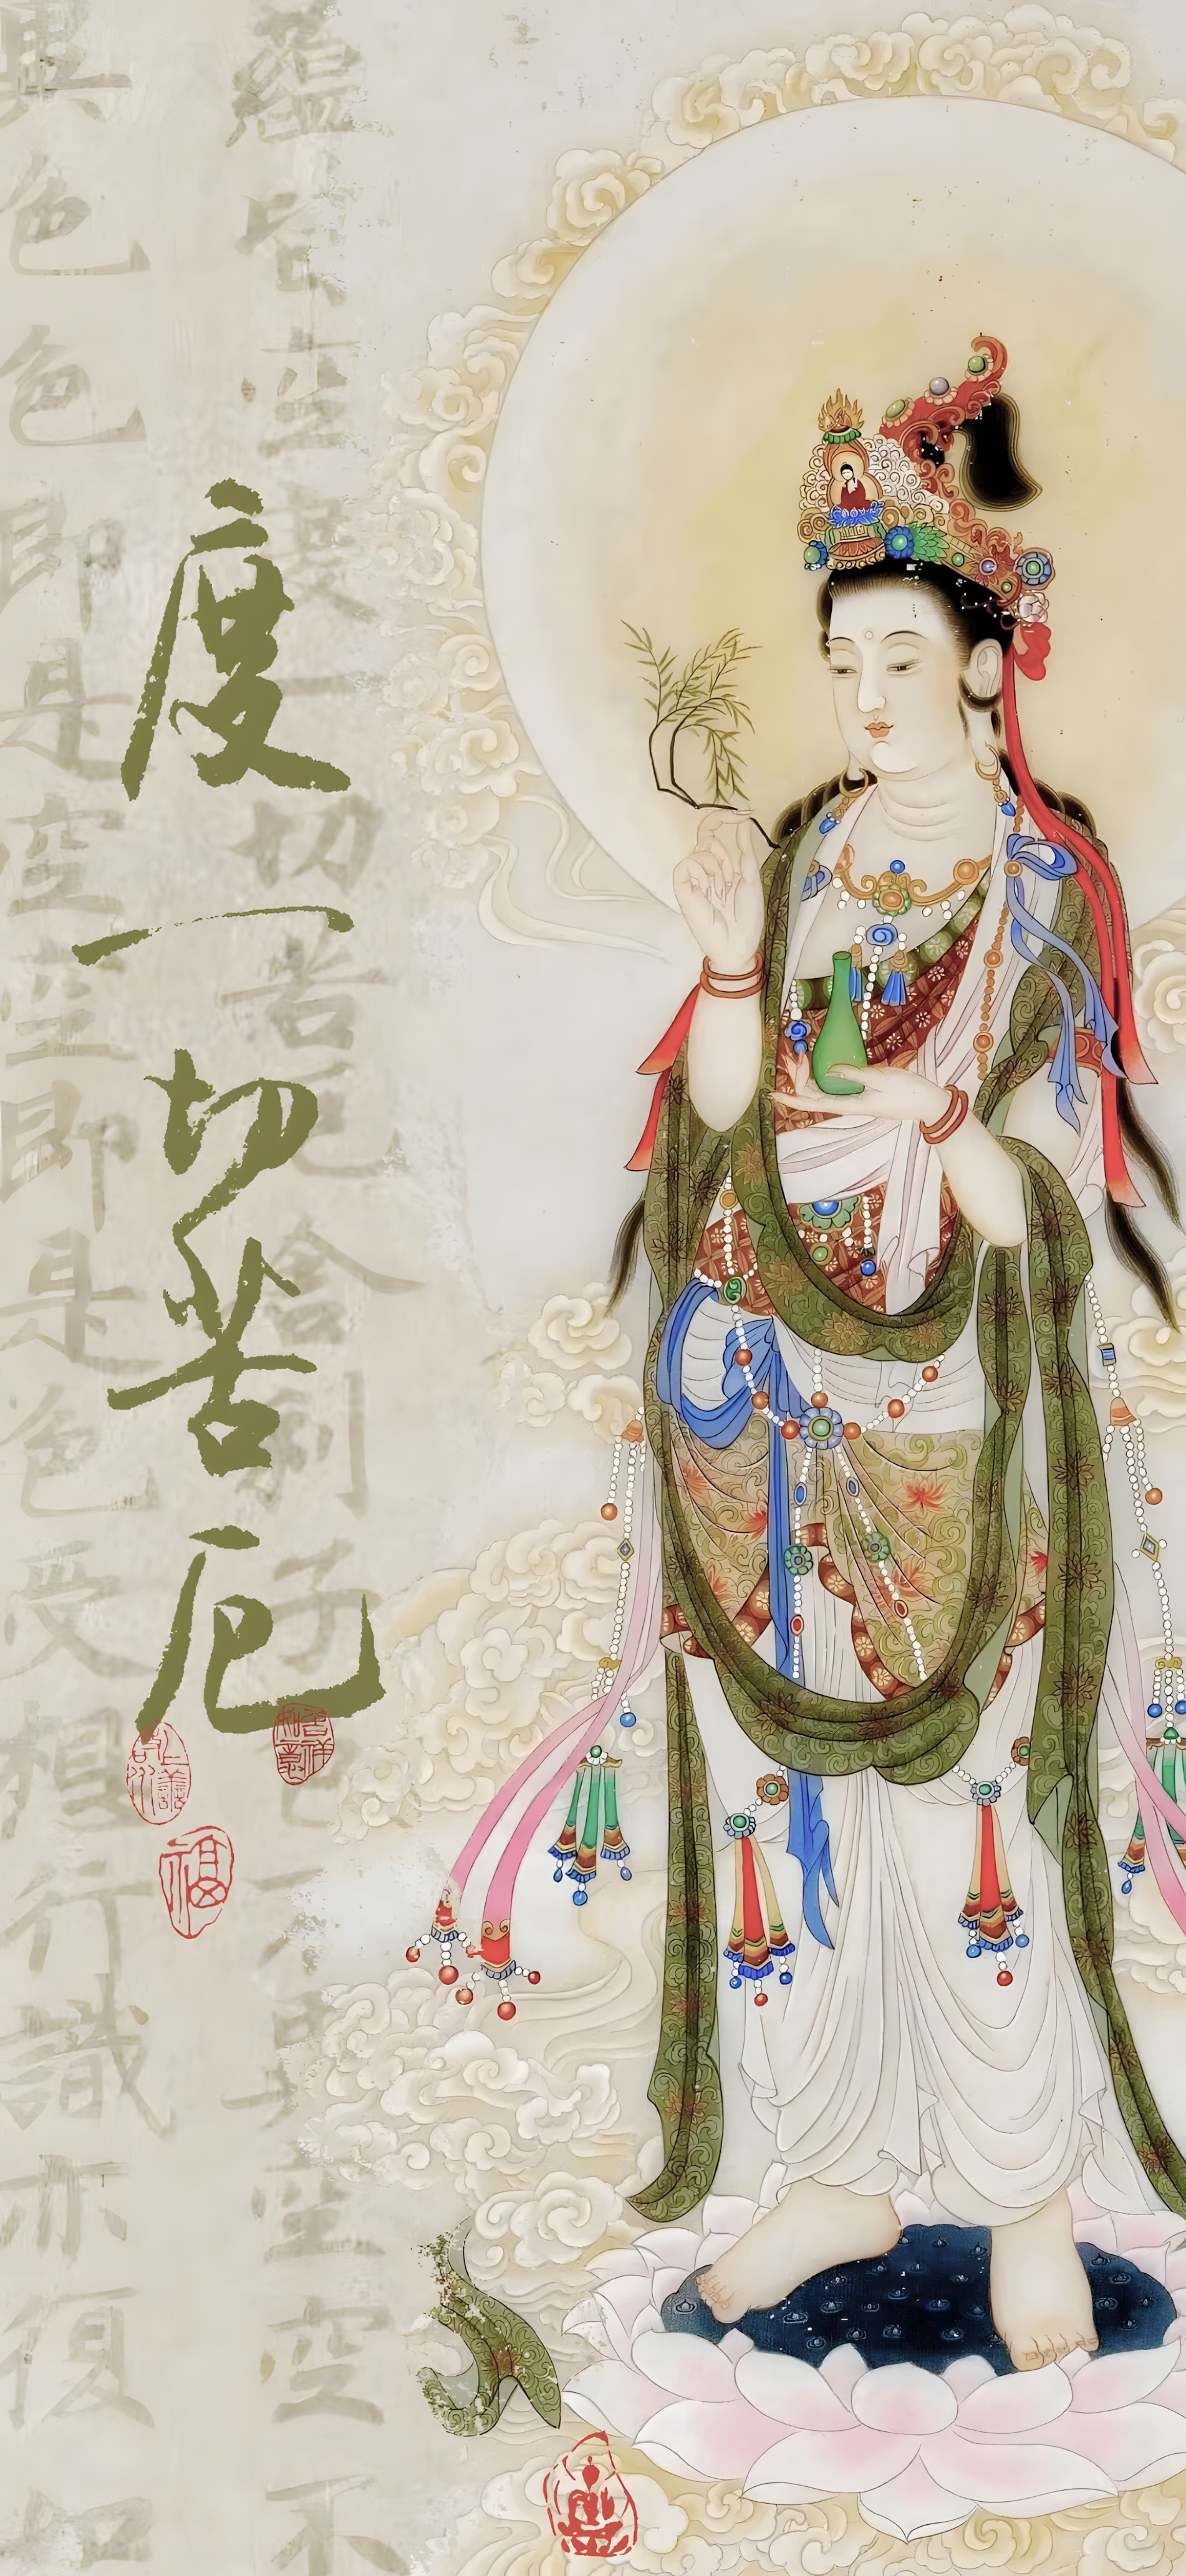 蘊皆空度切苦厄舍利子不異空空不
異色色即是空空即是色受想行識亦復如
度一切苦厄
吉祥如意
上善若水
福